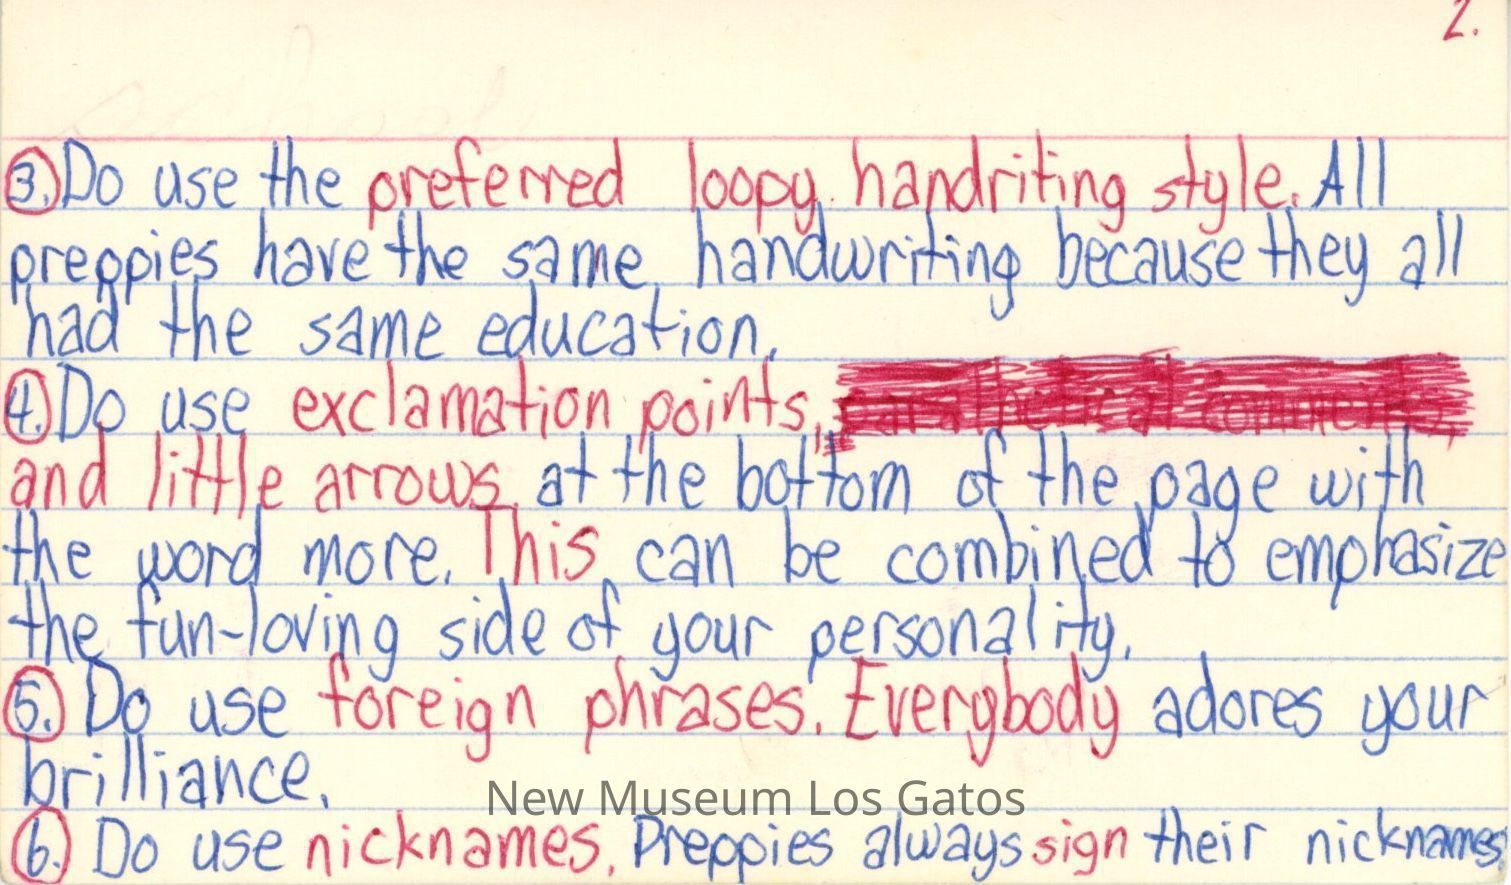 2.
3. Do use the preferred loopy handriting style. All
preppies have the same handwriting because they all
had the same education.
4. Do use exclamation points,
and little arrows at the bottom of the page with
the word more. This can be combined to emphasize
the fun-loving side of your personality.
5. Do use foreign phrases. Everybody adores your
brilliance.
New Museum Los Gatos
6. Do use nicknames. Preppies always sign their nicknames